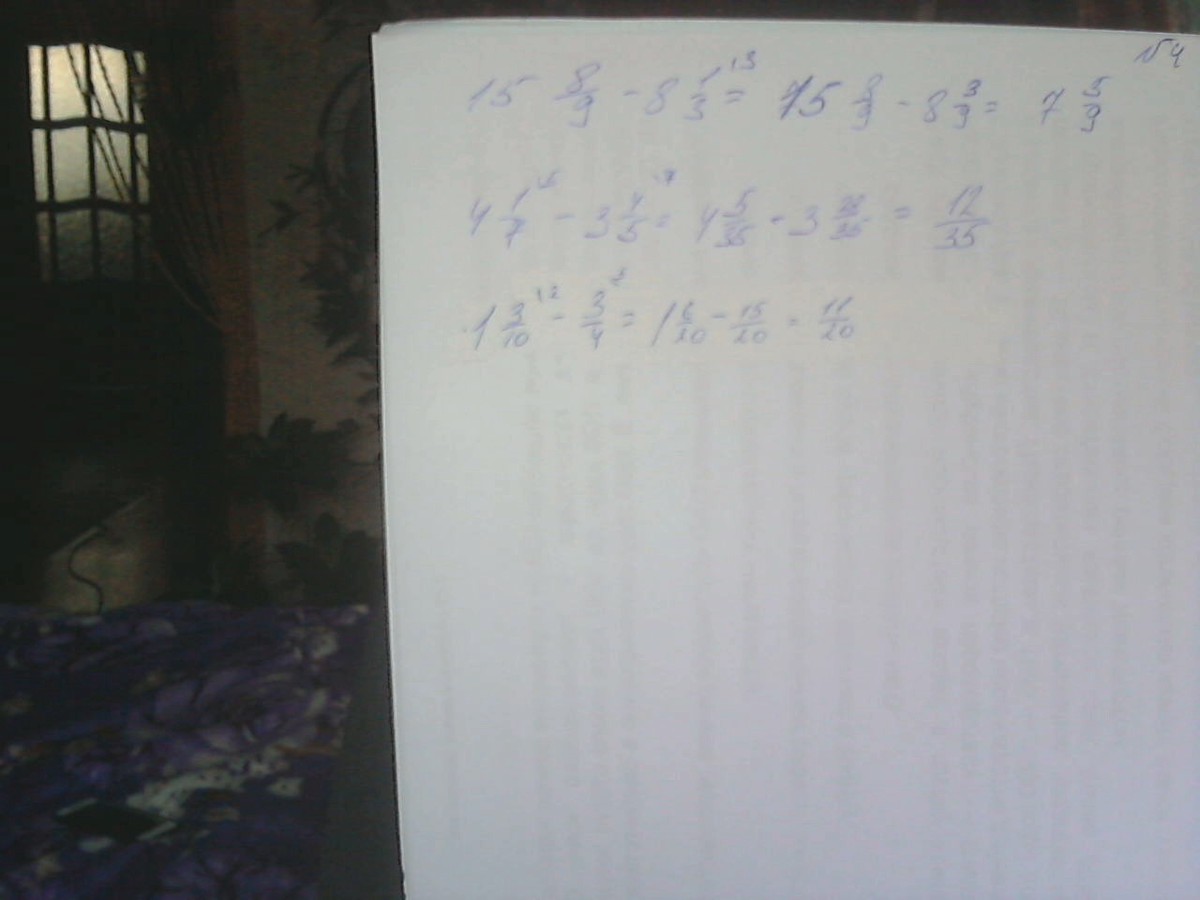 №4
15 8/9 - 8 1/3 = 15 8/9 - 8 3/9 = 7 5/9
4 1/7 - 3 4/5 = 4 5/35 - 3 28/35 = 12/35
1 3/10 - 3/4 = 1 6/20 - 15/20 = 11/20